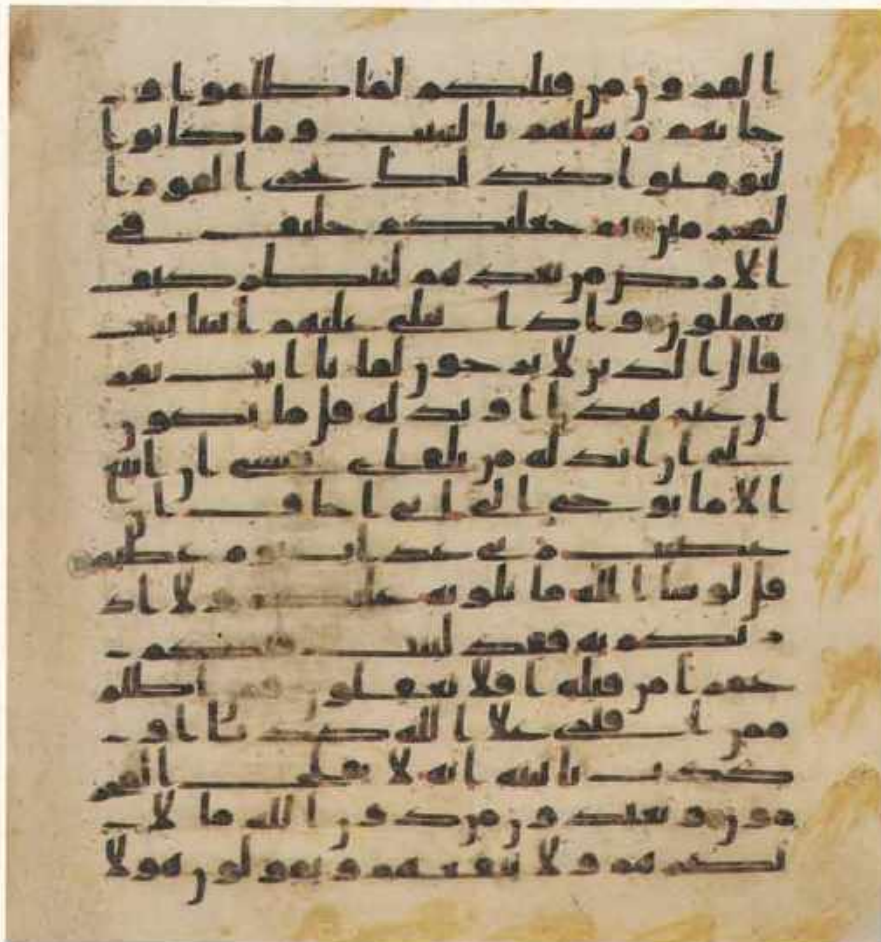 القرون من قبلكم لما ظلموا و
جاتهم رسلهم بالبينت وما كانوا
ليومنوا كذلك نجزى القوم ا
لمجرمين ثم جعلنكم خليف في
الارض من بعدهم لننظر كيف
تعملون واذا تتلى عليهم اياتنا بينت
قال الذين لا يرجون لقانا ايت بقر
ان غير هذا او بدله قل ما يكون
لى ان ابدله من تلقاى نفسى ان اتبع
الا ما يوحى الى انى اخاف ان
عصيت ربى عذاب يوم عظيم
قل لو شا الله ما تلوته عليكم ولا اد
ريكم به فقد لبثت فيكم
عمرا من قبله افلا تعقلون فمن اظلم
ممن افترى على الله كذبا او
كذب بايته انه لا يفلح المجر
مون ويعبدون من دون الله ما لا
يضرهم ولا ينفعهم ويقولون هولا